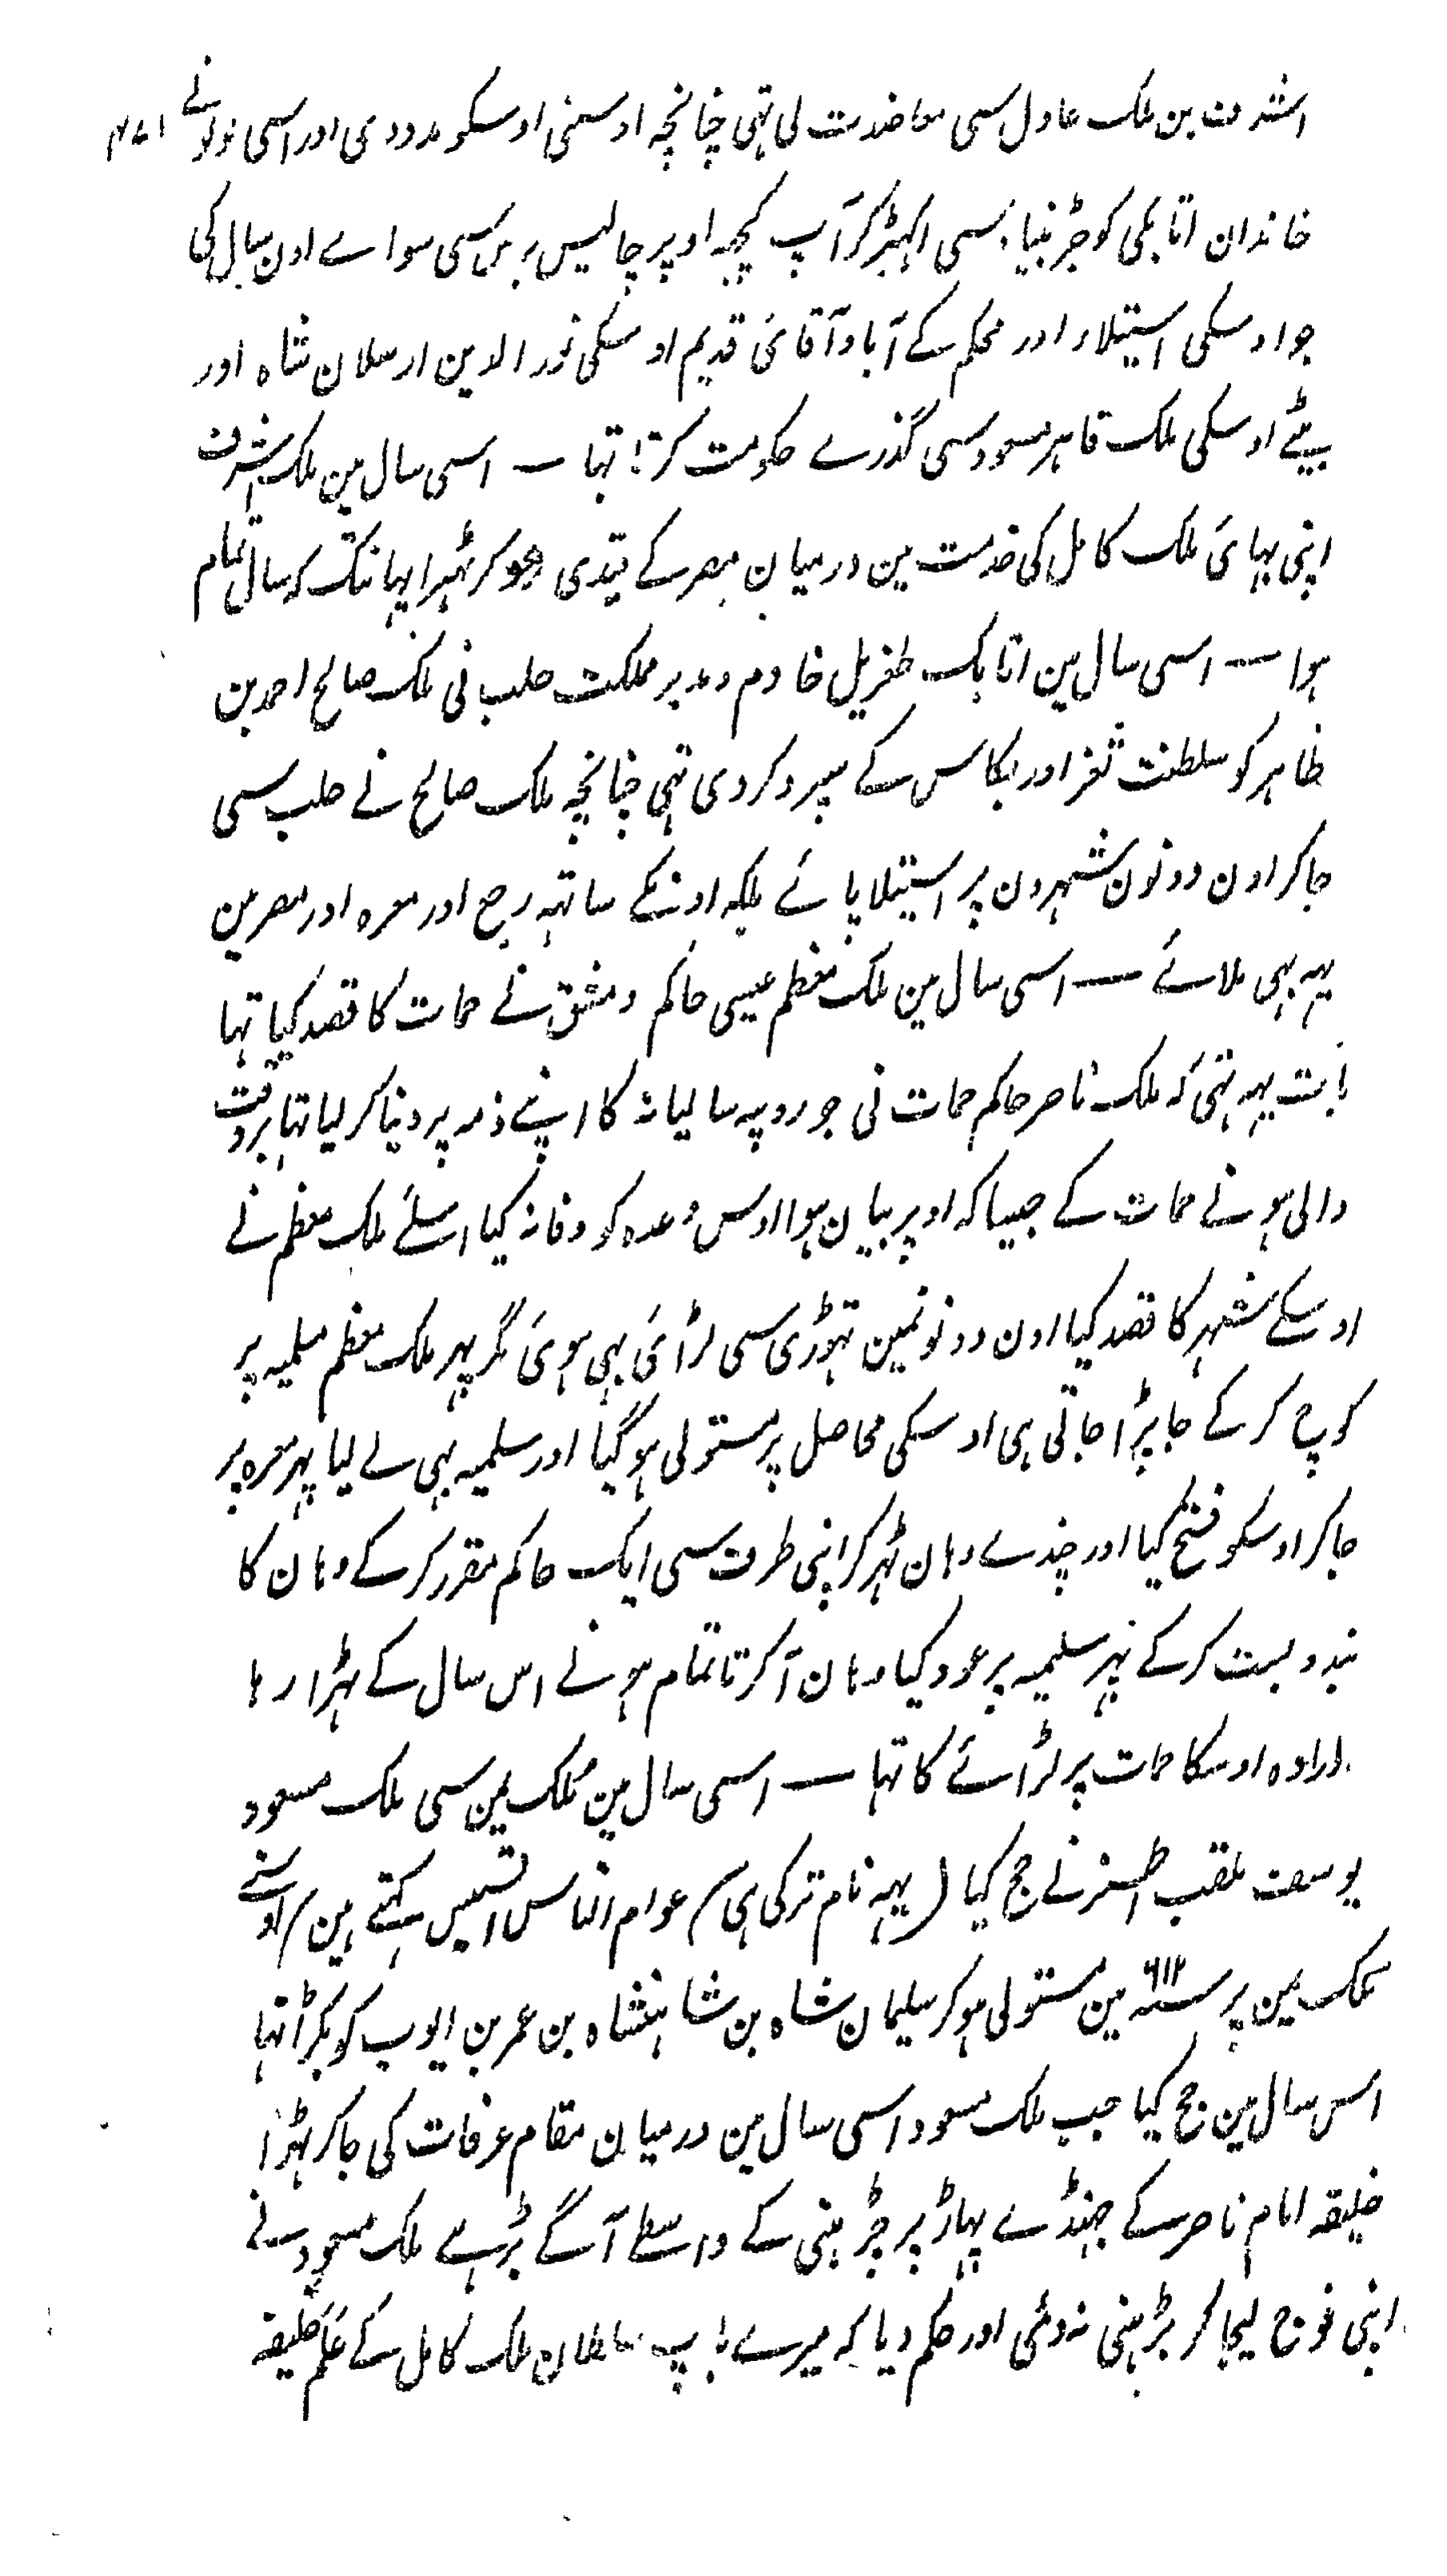 اشرف بن ملک عادل سی معاضدت لی تہی چنانچہ اوسنی اوسکو مدد دی اور اسی لولو نے
خاندان اتابکی کو جڑ بنیاد سی اکہیڑ کر آپ کچہہ اوپر چالیس برس سی سواے اون سال کی
جو اوسکی استیلاء اور محکم کے آباد آقائی قدیم اوسکی نور الدین ارسلان شاہ اور
بیٹے اوسکی ملک قاہر مسعود سی گذرے حکومت کرتا تہا — اسی سال مین ملک اشرف
اپنی بہائی ملک کامل کی خدمت مین درمیان مصر کے قیدی ہو کر ٹہیرا یہانتک کہ سال تمام
ہوا — اسی سال مین اتابک طغریل خادم و مدبر مملکت حلب نی ملک صالح احمد بن
ظاہر کو سلطنت ثغر اور بکاس کے سپرد کردی تہی چنانچہ ملک صالح نے حلب سی
جاکر اون دونون شہرون پر استیلا پائے بلکہ اونکے ساتہہ رجح اور معرہ اور مصرین
یہہ بہی ملائے — اسی سال مین ملک معظم عیسی حاکم دمشق نے حمات کا قصد کیا تہا
بابت یہہ تہی کہ ملک ناصر حاکم حمات نی جو روپیہ سالیانہ کا اپنے ذمہ پر دینا کر لیا تہا بروقت
والی ہونے حمات کے جیساکہ اوپر بیان ہوا اوس وعدہ کو وفا نہ کیا اسلئے ملک معظم نے
اوسکے شہر کا قصد کیا اون دونونمین تہوڑی سی لڑائی بہی ہوئی مگر پہر ملک معظم سلمیہ پر
کوچ کر کے جا پڑا جاتی ہی اوسکی محاصل پر مستولی ہو گیا اور سلمیہ بہی لے لیا پہر معرہ پر
جاکر اوسکو فتح کیا اور چندے وہان ٹہر کر اپنی طرف سی ایک حاکم مقرر کر کے وہان کا
بندوبست کر کے پہر سلیمیہ پر عود کیا وہان آ کر تا تمام ہونے اس سال کے ٹہرا رہا
ارادہ اوسکا حمات پر لڑائے کا تہا — اسی سال مین ملک یمن سی ملک مسعود
یوسف ملقب اطسز نے حج کیا (یہہ نام ترکی ہی) عوام الناس اقسیس کہتے ہین/ اوسنے
ملک یمن پر سنہ ۶۱۲ مین مستولی ہو کر سلیمان شاہ بن شاہنشاہ بن عمر بن ایوب کو پکڑا تہا
اس سال مین حج کیا جب ملک مسعود اسی سال مین درمیان مقام عرفات کی جاکر ٹہرا
خلیفہ امام ناصر کے جہنڈے پہاڑ پر چڑہنی کے واسطے آگے بڑہے ملک مسعود نے
اپنی فوج لیجا کر بڑہنی نہ دئی اور حکم دیا کہ میرے باپ سلطان ملک کامل کے عَلَم خلیفہ